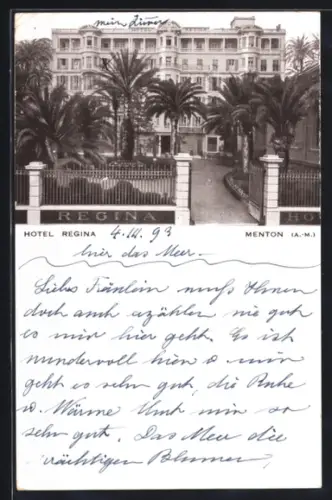 mein Zimmer
REGINA
HO
HOTEL REGINA 4.III.93 MENTON (A.-M.)
hier das Meer.
Liebes Fräulein muss Ihnen
doch auch erzählen wie gut
es mir hier geht. Es ist
wundervoll hier u. mir
geht es sehr gut, die Ruhe
u. Wärme thut mir so
sehr gut. Das Meer die
prächtigen Blumen,